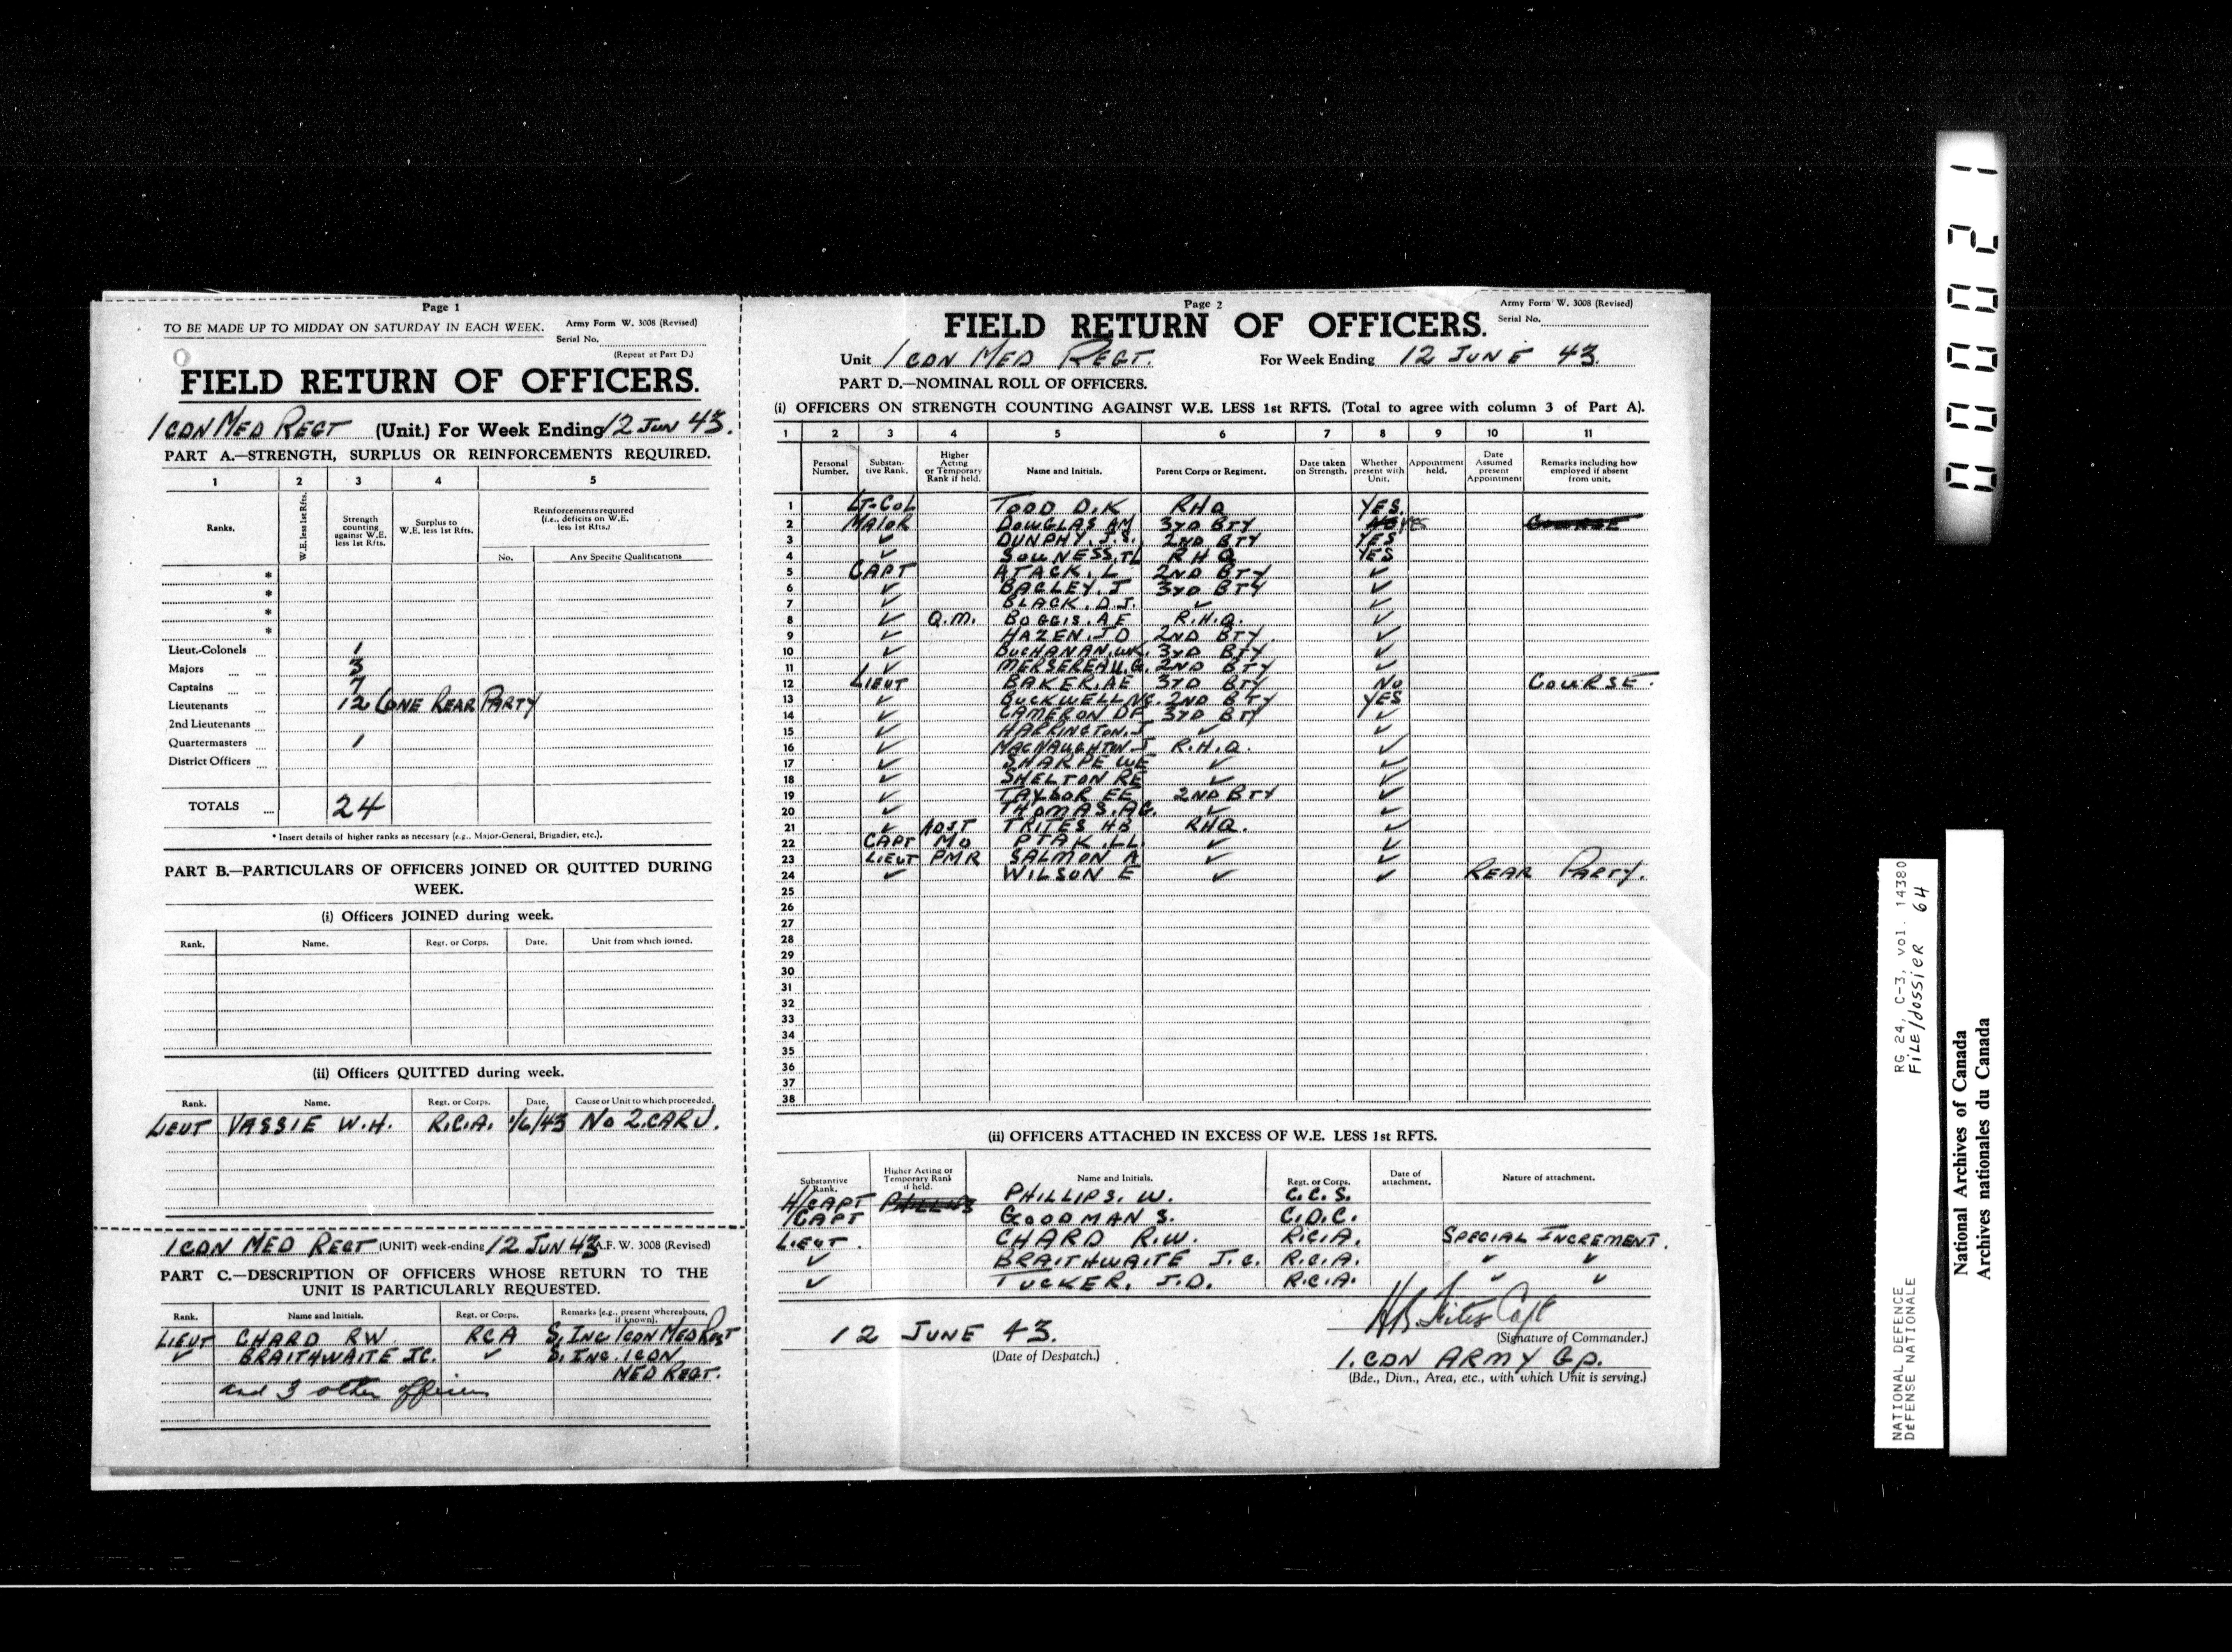 Page 1
TO BE MADE UP TO MIDDAY ON SATURDAY IN EACH WEEK. Army Form W. 3008 (Revised)
Serial No.
(Repeat at Part D.)
FIELD RETURN OF OFFICERS.
1 CDN MED REGT (Unit.) For Week Ending 12 JUN 43.
PART A.—STRENGTH, SURPLUS OR REINFORCEMENTS REQUIRED.
1 2 3 4 5
Ranks. W.E. less 1st Rfts. Strength counting against W.E. less 1st Rfts. Surplus to W.E. less 1st Rfts. Reinforcements required (i.e., deficits on W.E. less 1st Rfts.)
No. Any Specific Qualifications
*
*
*
*
Lieut.-Colonels 1
Majors 3
Captains 7
Lieutenants 12 (ONE REAR PARTY
2nd Lieutenants
Quartermasters 1
District Officers
TOTALS 24
* Insert details of higher ranks as necessary (e.g., Major-General, Brigadier, etc.).
PART B.—PARTICULARS OF OFFICERS JOINED OR QUITTED DURING
WEEK.
(i) Officers JOINED during week.
Rank. Name. Regt. or Corps. Date. Unit from which joined.
(ii) Officers QUITTED during week.
Rank. Name. Regt. or Corps. Date. Cause or Unit to which proceeded.
LIEUT VASSIE W.H. R.C.A. 1/6/43 No 2.CARU.
1 CDN MED REGT (UNIT) week-ending 12 JUN 43 A.F. W. 3008 (Revised)
PART C.—DESCRIPTION OF OFFICERS WHOSE RETURN TO THE
UNIT IS PARTICULARLY REQUESTED.
Rank. Name and Initials. Regt. or Corps. Remarks (e.g., present whereabouts, if known).
LIEUT CHARD RW RCA S. INC 1 CDN MED REGT
✓ BRAITHWAITE JC. ✓ S. INC. 1 CDN
MED REGT.
and 3 other officers
Page 2
Army Form W. 3008 (Revised)
FIELD RETURN OF OFFICERS. Serial No.
Unit 1 CDN MED REGT. For Week Ending 12 JUNE 43.
PART D.—NOMINAL ROLL OF OFFICERS.
(i) OFFICERS ON STRENGTH COUNTING AGAINST W.E. LESS 1st RFTS. (Total to agree with column 3 of Part A).
1 2 3 4 5 6 7 8 9 10 11
Personal Number. Substantive Rank. Higher Acting or Temporary Rank if held. Name and Initials. Parent Corps or Regiment. Date taken on Strength. Whether present with Unit. Appointment held. Date Assumed present Appointment Remarks including how employed if absent from unit.
1 LT-COL TODD D.K RHQ YES.
2 MAJOR DOUGLAS AM 3RD BTY NO YES COURSE
3 ✓ DUNPHY. J.S. 2ND BTY YES
4 ✓ SOUNESS. TL RHQ YES
5 CAPT ATACK. L 2ND BTY ✓
6 ✓ BAGLEY. J 3RD BTY ✓
7 ✓ BLACK. D.J. ✓ ✓
8 ✓ Q.M. BOGGIS. AE R.H.Q. ✓
9 ✓ HAZEN. JD 2ND BTY ✓
10 ✓ BUCHANAN. WK. 3RD BTY ✓
11 ✓ MERSEREAU. G. 2ND BTY ✓
12 LIEUT BAKER. AE 3RD BTY NO COURSE.
13 ✓ BUCKWELL NG. 2ND BTY YES
14 ✓ CAMERON DF 3RD BTY ✓
15 ✓ HARRINGTON. J ✓ ✓
16 ✓ MACNAUGHTON J R.H.Q. ✓
17 ✓ SHARPE WE ✓ ✓
18 ✓ SHELTON RE ✓ ✓
19 ✓ TAYLOR EE 2ND BTY ✓
20 ✓ THOMAS. AG. ✓ ✓
21 ✓ ADJT TRITES HB RHQ. ✓
22 CAPT MO PTAK. LL. ✓ ✓
23 LIEUT PMR SALMON A ✓ ✓
24 ✓ WILSON E ✓ ✓ REAR PARTY.
25
26
27
28
29
30
31
32
33
34
35
36
37
38
(ii) OFFICERS ATTACHED IN EXCESS OF W.E. LESS 1st RFTS.
Substantive Rank. Higher Acting or Temporary Rank if held. Name and Initials. Regt. or Corps. Date of attachment. Nature of attachment.
H/CAPT PHILLIPS PHILLIPS. W. C.C.S.
/CAPT GOODMAN S. C.D.C.
LIEUT. CHARD R.W. R.C.A. SPECIAL INCREMENT.
✓ BRAITHWAITE J.C. R.C.A. ✓ ✓
✓ TUCKER. J.D. R.C.A. ✓ ✓
12 JUNE 43. HB Trites Capt
(Date of Despatch.) (Signature of Commander.)
1. CDN ARMY GP.
(Bde., Divn., Area, etc., with which Unit is serving.)
00002 1
NATIONAL DEFENCE RG 24, C-3, vol. 14380
DÉFENSE NATIONALE FILE/dossier 64
National Archives of Canada
Archives nationales du Canada